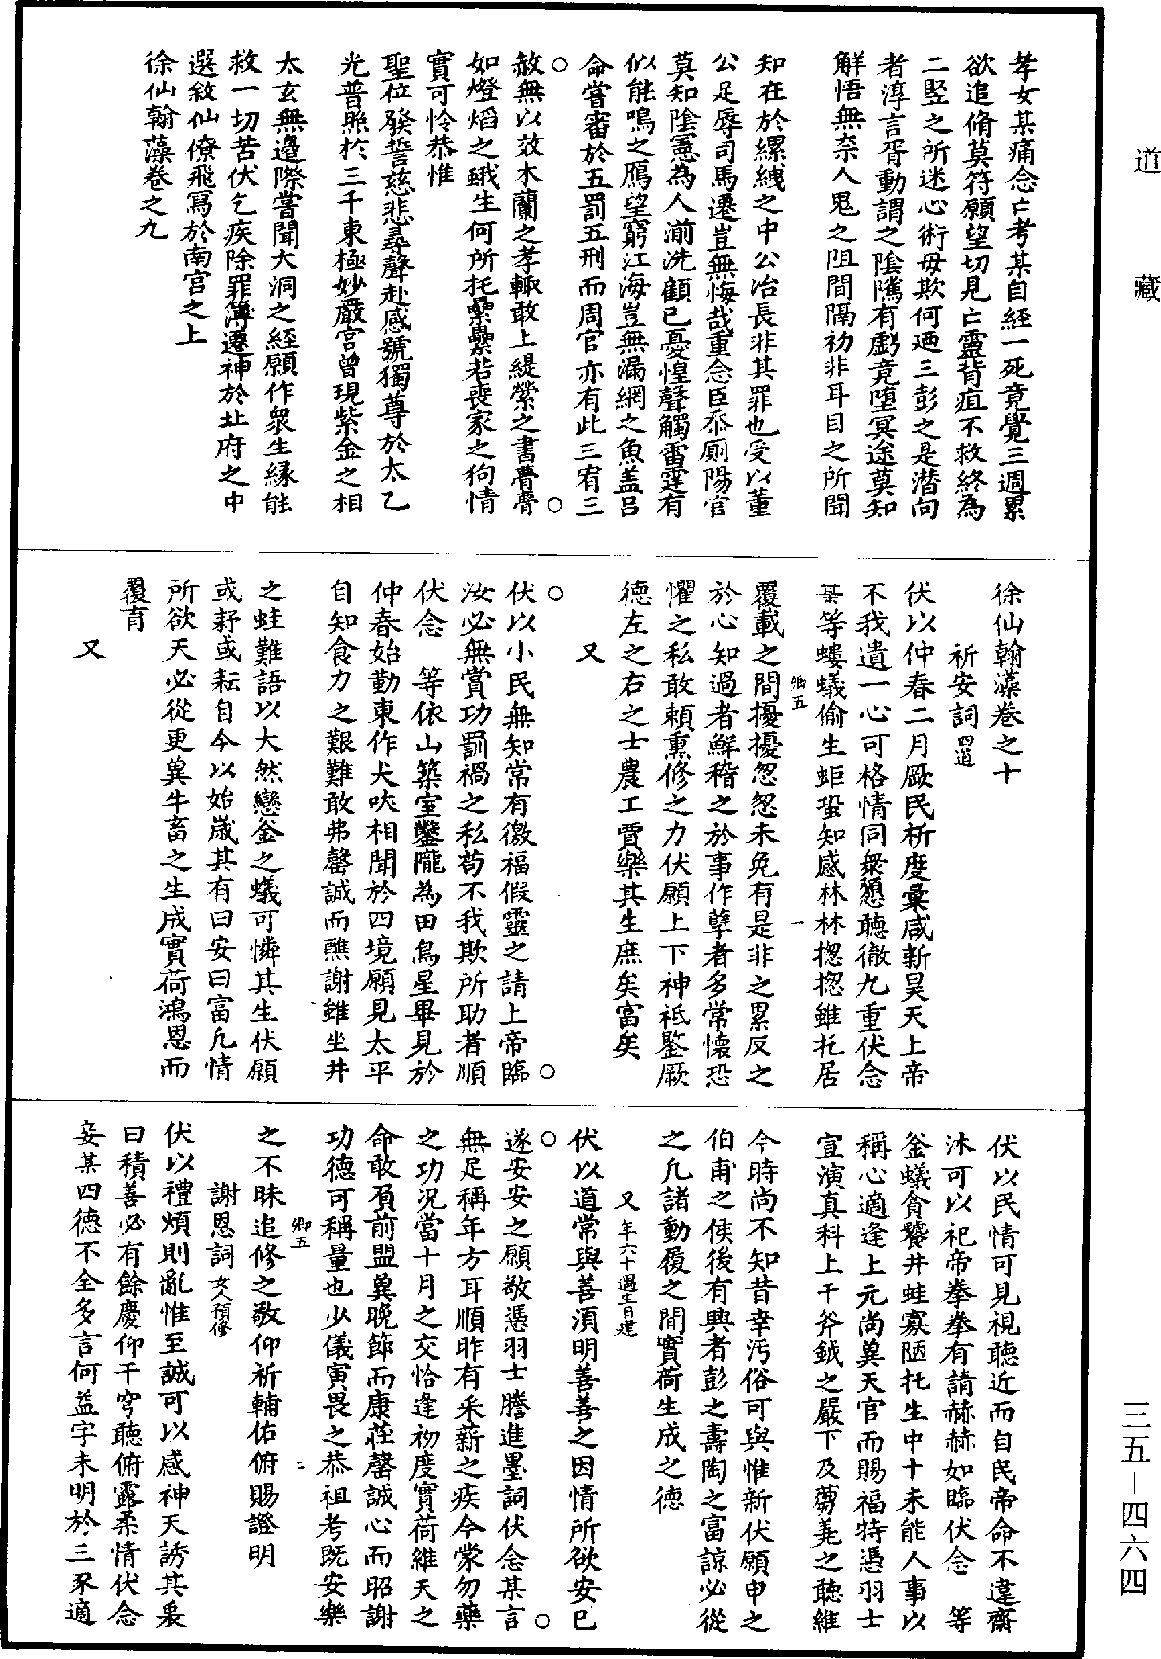 道藏
孝女某痛念亡考某自經一死竟覺三週累
欲追脩莫符願望切見亡靈背疽不救終為
二竪之所迷心術毋欺何廼三彭之是潛向
者淳言胥動謂之陰隲有虧竟墮冥途莫知
解悟無奈人鬼之阻間隔初非耳目之所聞
知在於縲絏之中公冶長非其罪也受以董
公足辱司馬遷豈無悔哉重念臣忝廁陽官
莫知陰憲為人湔洗顧已憂惶聲觸雷霆有
似能鳴之鴈望窮江海豈無漏網之魚盖吕
命嘗審於五罰五刑而周官亦有此三宥三
赦無以效木蘭之孝輒敢上緹縈之書膋膋
如燈熖之蛾生何所托纍纍若喪家之狗情
實可怜恭惟
聖位發誓慈悲尋聲赴感號獨尊於太乙
光普照於三千東極妙嚴宮曾現紫金之相
太玄無邊際嘗聞大洞之經願作衆生緣能
救一切苦伏乞疾除罪簿遷神於北府之中
選敘仙僚飛舄於南宮之上
徐仙翰藻卷之九
徐仙翰藻卷之十
祈安詞四道
伏以仲春二月厥民析度彙咸新昊天上帝
不我遺一心可格情同衆愬聽徹九重伏念
某等螻蟻偷生蚷蛩知感林林揔揔雖托居
卿五
一
覆載之間擾擾忽忽未免有是非之累反之
於心知過者鮮稽之於事作孽者多常懷恐
懼之私敢頼熏修之力伏願上下神祇鑒厥
德左之右之士農工賈樂其生庶矣富矣
又
伏以小民無知常有徼福假靈之請上帝臨
汝必無賞功罰禍之私苟不我欺所助者順
伏念　等依山築室鑿隴為田鳥星畢見於
仲春始勤東作犬吠相聞於四境願見太平
自知食力之艱難敢弗罄誠而醮謝雖坐井
之蛙難語以大然戀釡之蟻可憐其生伏願
或耔或耘自今以始歲其有曰安曰富凡情
所欲天必從更兾牛畜之生成實荷鴻恩而
覆育
又
伏以民情可見視聽近而自民帝命不違齋
沐可以祀帝拳拳有請赫赫如臨伏念　等
釡蟻貪饕井蛙寡陋托生中十未能人事以
稱心適逢上元尚兾天官而賜福特憑羽士
宣演真科上干斧鉞之嚴下及蒭蕘之聽維
今時尚不知昔幸汚俗可與惟新伏願申之
伯甫之侯後有興者彭之壽陶之富諒必從
之凡諸動履之間實荷生成之德
又年六十過生日建
伏以道常與善須明善善之因情所欲安巳
遂安安之願敬憑羽士謄進墨詞伏念某言
無足稱年方耳順昨有采薪之疾今蒙勿藥
之功況當十月之交恰逢初度實荷維天之
命敢負前盟兾晚節而康莊罄誠心而昭謝
功德可稱量也少儀寅畏之恭祖考既安樂
卿五
二
之不昧追修之敬仰祈輔佑俯賜證明
謝恩詞女人預修
伏以禮煩則亂惟至誠可以感神天誘其衷
曰積善必有餘慶仰干穹聽俯露柔情伏念
妾某四德不全多言何益字未明於三豕適
三五—四六四